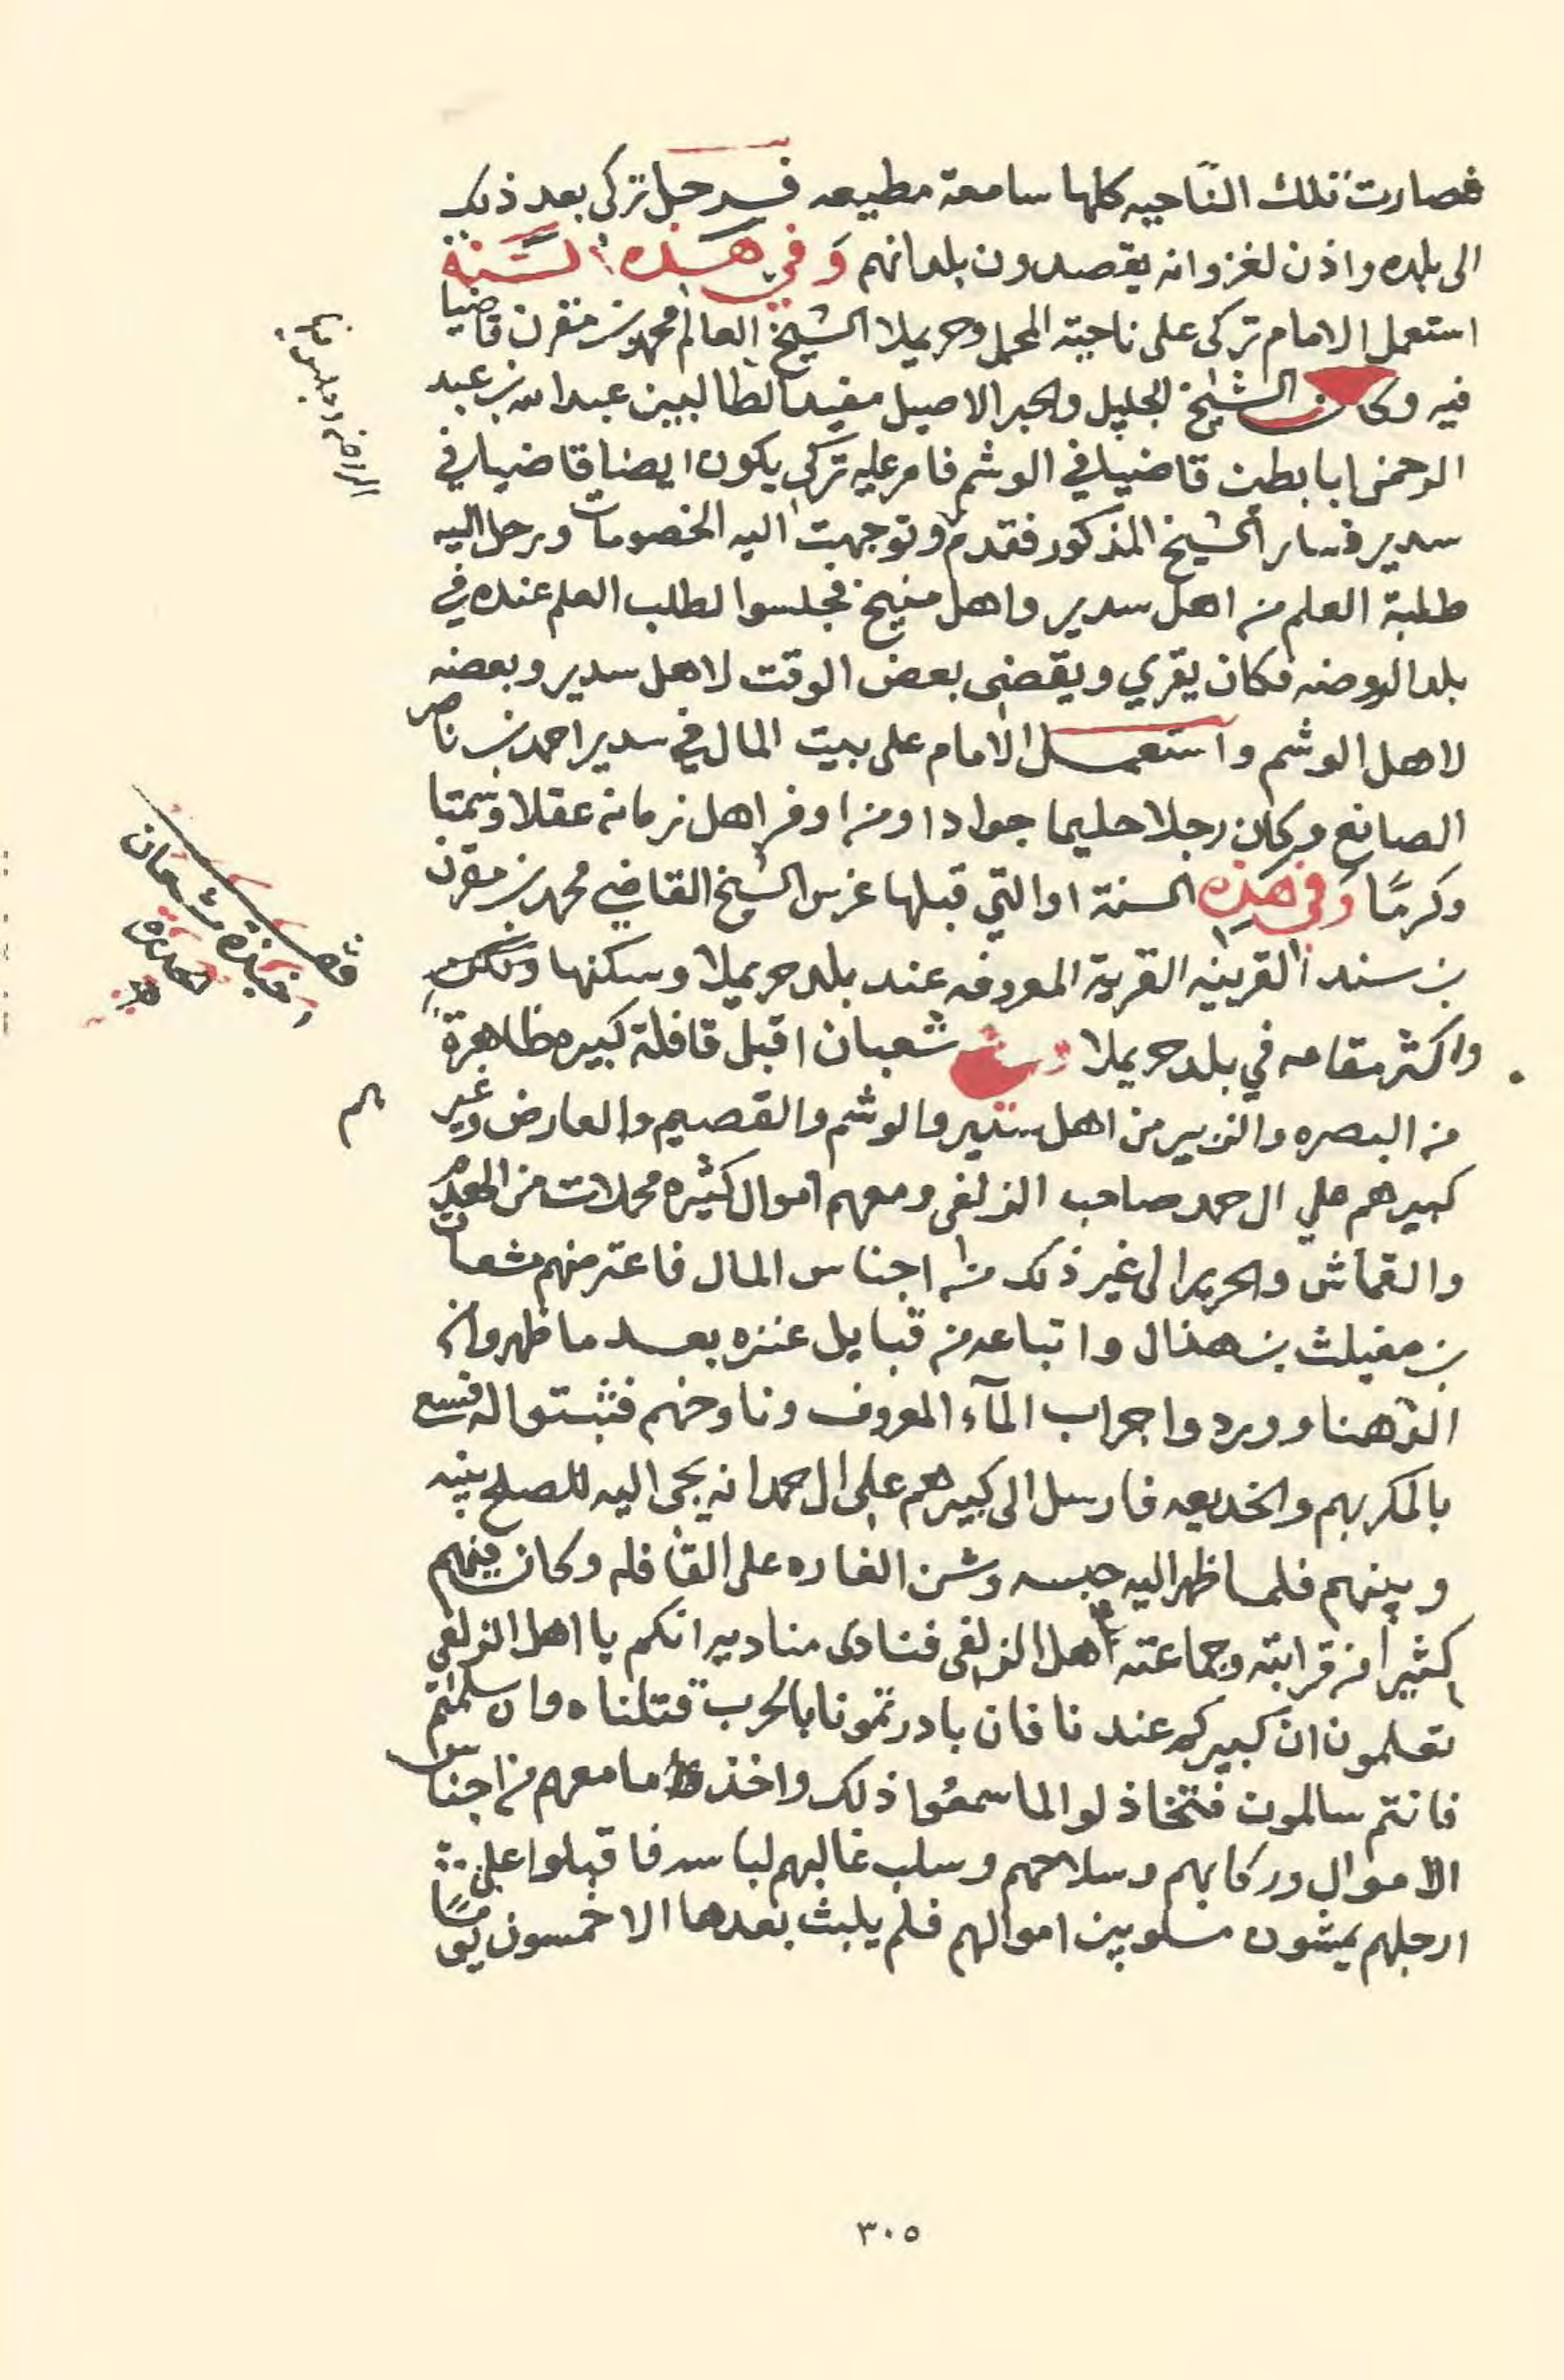 فصارت تلك الناحيه كلها سامعة مطيعه فرحل تركي بعد ذلك
الى بلده واذن لغزوانه يقصدون بلدانهم وفي هذه السنة
استعمل الامام تركى على ناحية المحمل وحريملا الشيخ العالم محمد بن مقرن قاضيا
فيه وكان الشيخ الجليل والحبر الاصيل مفيد الطالبين عبد الله بن عبد
الرحمن ابا بطين قاضيا في الوشم فامر عليه تركي يكون ايضا قاضيا في
سدير فسار الشيخ المذكور فقدم وتوجهت اليه الخصومات ورحل اليه
طلبة العلم من اهل سدير واهل منيخ فجلسوا لطلب العلم عنده في
بلد الروضه فكان يقري ويقضى بعض الوقت لاهل سدير وبعضه
لاهل الوشم واستعمل الامام على بيت المال في سدير احمد بن ناصر
الصانع وكان رجلا حليما جوادا ومن اوفر اهل زمانه عقلا وسمتا
وكرمًا وفي هذه السنة او التي قبلها غرس الشيخ القاضي محمد بن مقرن
بن سند القرينه القرية المعروفه عند بلد حريملا وسكنها ولكن
واكثر مقامه في بلد حريملا وفي شعبان اقبل قافلة كبيره ظاهرة
من البصره والزبير من اهل سدير والوشم والقصيم والعارض وغيرهم
كبيرهم علي ال حمد صاحب الزلفى ومعهم اموال كثيره محملات من الهدم
والقماش والحرير الى غير ذلك من اجناس المال فاعترضهم مشعان
بن مغيلث بن هذال واتباعه من قبايل عنزه بعد ما ظهروا من
الدهنا ووردوا جراب المآء المعروف وناوخهم فثبتوا له فسع
بالمكر بهم والخديعه فارسل الى كبيرهم على ال حمد انه يجى اليه للصلح بينه
وبينهم فلما ظهر اليه حبسه وشن الغاره على القافله وكان فيهم
كثيرا من قرابته وجماعته اهل الزلفى فنادى مناديه انكم يا اهل الزلفى
تعلمون ان كبيركم عندنا فان بادرتمونا بالحرب قتلناه وان سلمتم
فانتم سالمون فتخاذلوا لما سمعوا ذلك واخذ ما معهم من اجناس
الاموال وركابهم وسلاحهم وسلب غالبهم لباسه فاقبلوا على
ارجلهم يمشون مسلوبين اموالهم فلم يلبث بعدها الا خمسون يومًا
٣٠٥